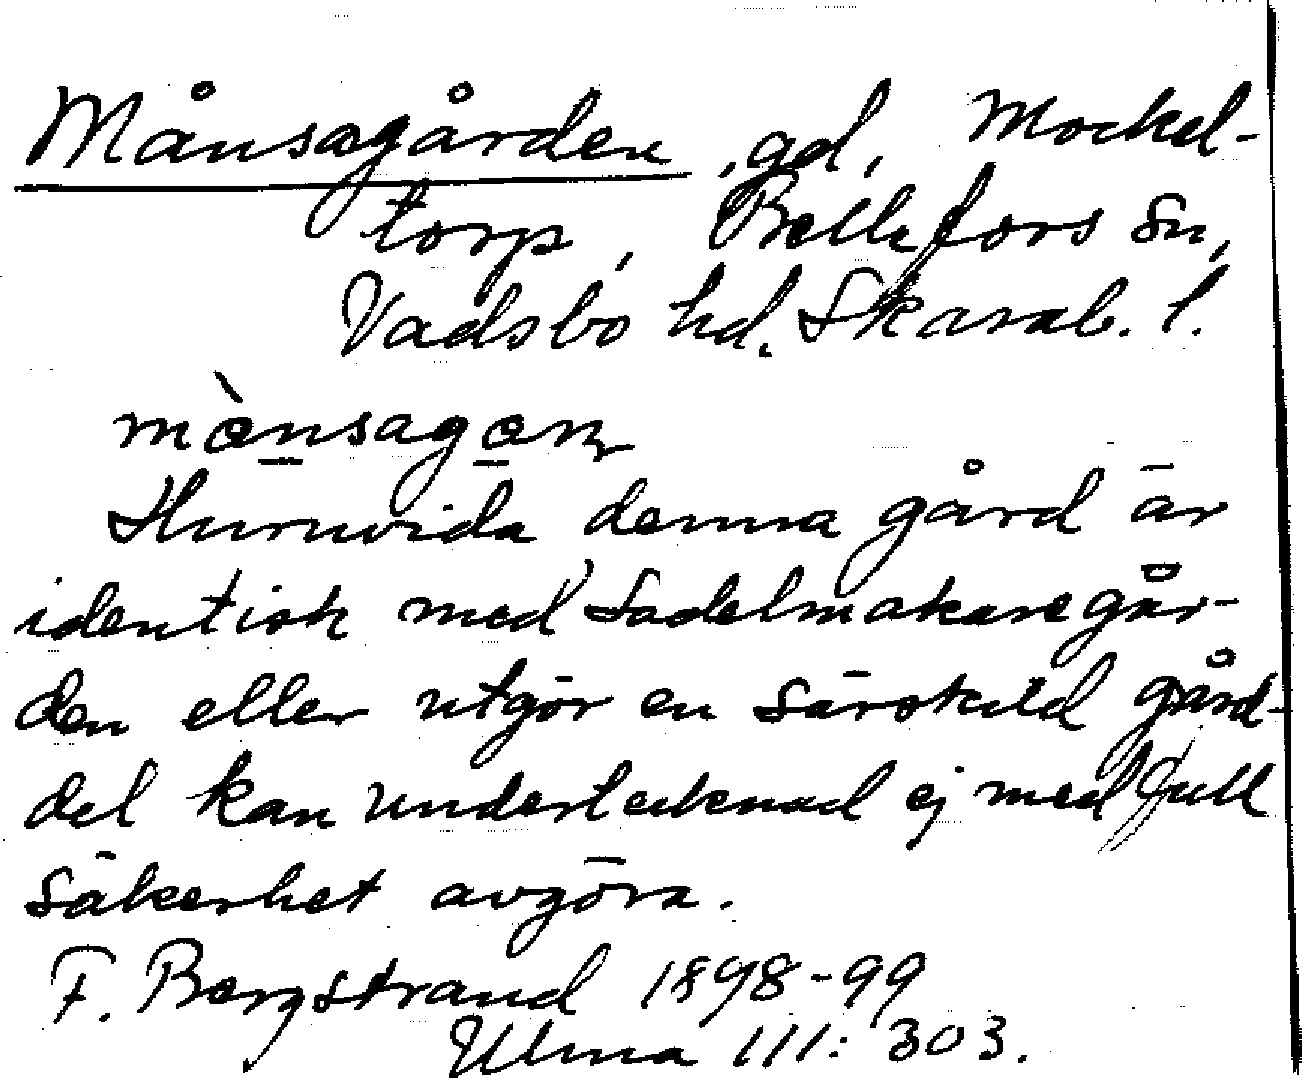 Månsagården, gd, Mockel-
torp, Bellefors sn,
Vadsbo hd. Skarab. l.
mànsagan
Huruvida denna gård är
identisk med Sadelmakaregår-
den eller utgör en särskild gård-
del kan undertecknad ej med full
säkerhet avgöra.
F. Bergstrand 1898-99
Ulma 111: 303.